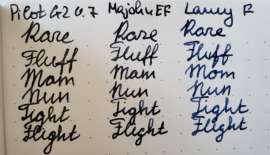 Pilot G2 0.7 Majohn EF Lamy F
Rare Rare Rare
Fluff Fluff Fluff
Mom Mam Mom
Nun Nun Nun
Tight Tight Tight
Flight Flight Flight